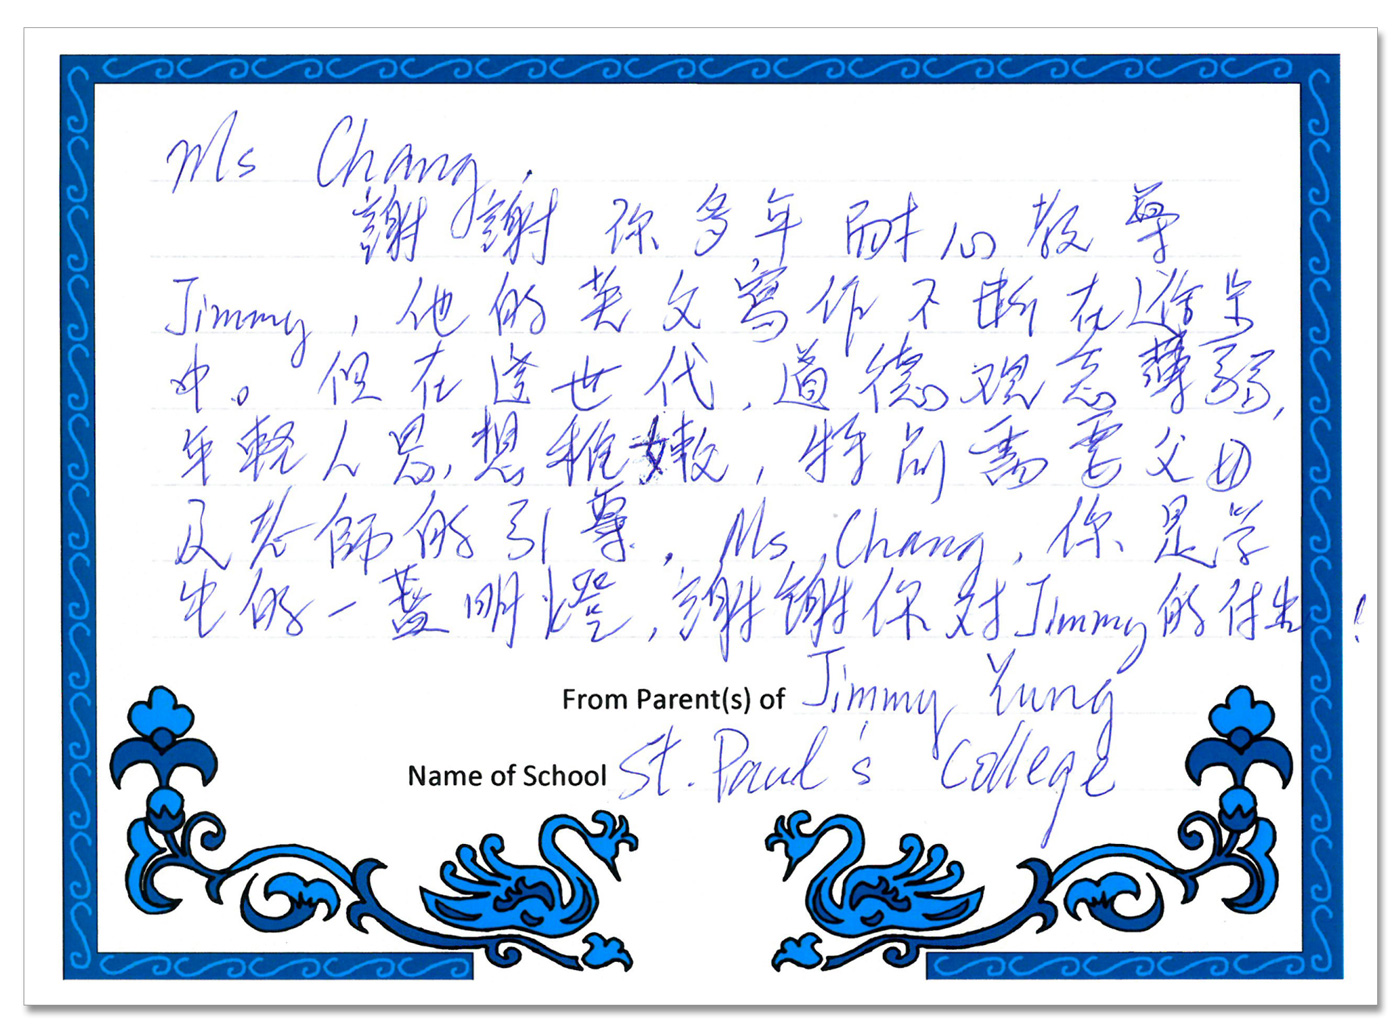 Ms Chang,
謝謝你多年耐心教導
Jimmy，他的英文寫作不斷在進步
中。但在這世代，道德观念薄弱，
年輕人思想稚嫩，特別需要父母
及老師的引導。Ms Chang，你是学
生的一盞明燈，謝謝你对Jimmy的付出！
From Parent(s) of Jimmy Yung
Name of School St. Paul's College